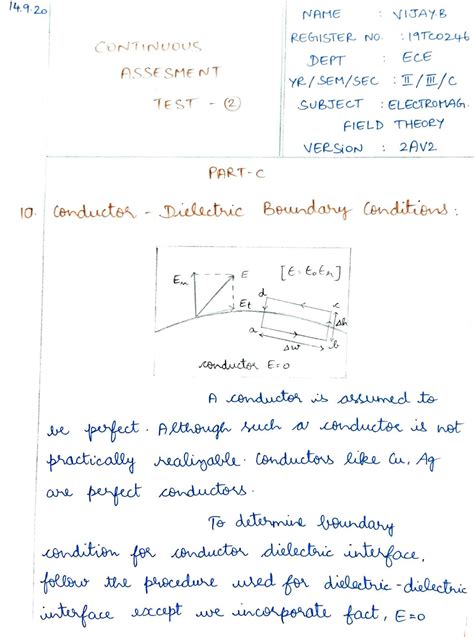 14.9.20
CONTINUOUS
ASSESMENT
TEST - ②
NAME : VIJAY.B
REGISTER NO. : 19TC0246
DEPT : ECE
YR/SEM/SEC : II/III/C
SUBJECT : ELECTROMAG.
FIELD THEORY
VERSION : 2AV2
PART-C
10. Conductor - Dielectric Boundary Conditions :
En
E
[E = E0 En]
Et
d
c
Δh
a
b
Δw
conductor E=0
A conductor is assumed to
be perfect. Although such a conductor is not
practically realizable. Conductors like Cu, Ag
are perfect conductors.
To determine boundary
condition for conductor dielectric interface,
follow the procedure used for dielectric-dielectric
interface except we incorporate fact, E=0